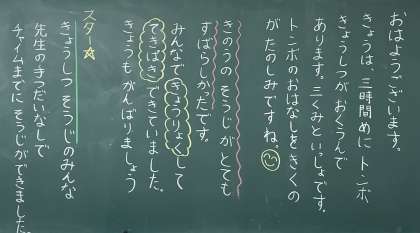 おはようございます。
きょうは、三時間めに トンボ
きょうしつが おくうんで
あります。三くみといっしょです。
トンボのおはなしをきくの
がたのしみですね。
きのうの そうじが とても
すばらしかったです。
みんなで きょうりょくして
てきぱきできていました。
きょうもがんばりましょう
スター☆
きょうしつ そうじの みんな
先生の手つだいなしで
チャイムまでに そうじができました。